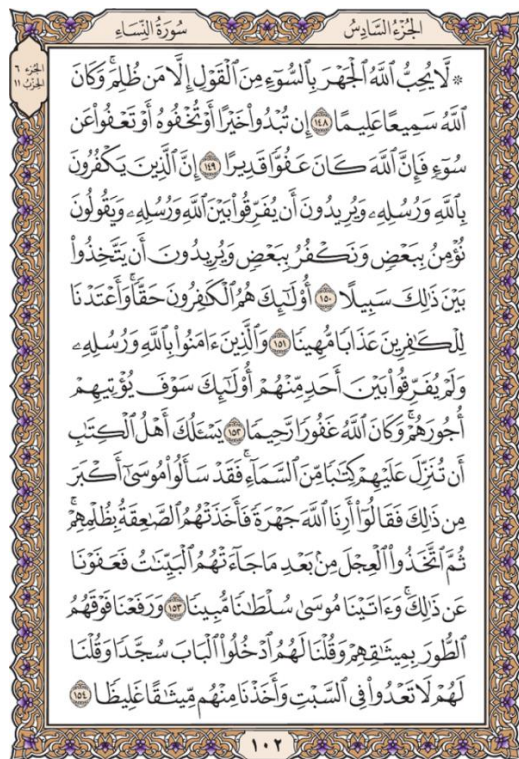 سُورَةُ النِّسَاءِ
الجُزْءُ السَّادِسُ
الجزء ٦
الحزب ١١
۞ لَّا يُحِبُّ ٱللَّهُ ٱلْجَهْرَ بِٱلسُّوٓءِ مِنَ ٱلْقَوْلِ إِلَّا مَن ظُلِمَۚ وَكَانَ
ٱللَّهُ سَمِيعًا عَلِيمًا ١٤٨ إِن تُبْدُوا۟ خَيْرًا أَوْ تُخْفُوهُ أَوْ تَعْفُوا۟ عَن
سُوٓءٍ فَإِنَّ ٱللَّهَ كَانَ عَفُوًّا قَدِيرًا ١٤٩ إِنَّ ٱلَّذِينَ يَكْفُرُونَ
بِٱللَّهِ وَرُسُلِهِۦ وَيُرِيدُونَ أَن يُفَرِّقُوا۟ بَيْنَ ٱللَّهِ وَرُسُلِهِۦ وَيَقُولُونَ
نُؤْمِنُ بِبَعْضٍ وَنَكْفُرُ بِبَعْضٍ وَيُرِيدُونَ أَن يَتَّخِذُوا۟
بَيْنَ ذَٰلِكَ سَبِيلًا ١٥٠ أُو۟لَٰٓئِكَ هُمُ ٱلْكَٰفِرُونَ حَقًّاۚ وَأَعْتَدْنَا
لِلْكَٰفِرِينَ عَذَابًا مُّهِينًا ١٥١ وَٱلَّذِينَ ءَامَنُوا۟ بِٱللَّهِ وَرُسُلِهِۦ
وَلَمْ يُفَرِّقُوا۟ بَيْنَ أَحَدٍ مِّنْهُمْ أُو۟لَٰٓئِكَ سَوْفَ يُؤْتِيهِمْ
أُجُورَهُمْۚ وَكَانَ ٱللَّهُ غَفُورًا رَّحِيمًا ١٥٢ يَسْـَٔلُكَ أَهْلُ ٱلْكِتَٰبِ
أَن تُنَزِّلَ عَلَيْهِمْ كِتَٰبًا مِّنَ ٱلسَّمَآءِۚ فَقَدْ سَأَلُوا۟ مُوسَىٰٓ أَكْبَرَ
مِن ذَٰلِكَ فَقَالُوٓا۟ أَرِنَا ٱللَّهَ جَهْرَةً فَأَخَذَتْهُمُ ٱلصَّٰعِقَةُ بِظُلْمِهِمْۚ
ثُمَّ ٱتَّخَذُوا۟ ٱلْعِجْلَ مِنۢ بَعْدِ مَا جَآءَتْهُمُ ٱلْبَيِّنَٰتُ فَعَفَوْنَا
عَن ذَٰلِكَۚ وَءَاتَيْنَا مُوسَىٰ سُلْطَٰنًا مُّبِينًا ١٥٣ وَرَفَعْنَا فَوْقَهُمُ
ٱلطُّورَ بِمِيثَٰقِهِمْ وَقُلْنَا لَهُمُ ٱدْخُلُوا۟ ٱلْبَابَ سُجَّدًا وَقُلْنَا
لَهُمْ لَا تَعْدُوا۟ فِى ٱلسَّبْتِ وَأَخَذْنَا مِنْهُم مِّيثَٰقًا غَلِيظًا ١٥٤
١٠٢